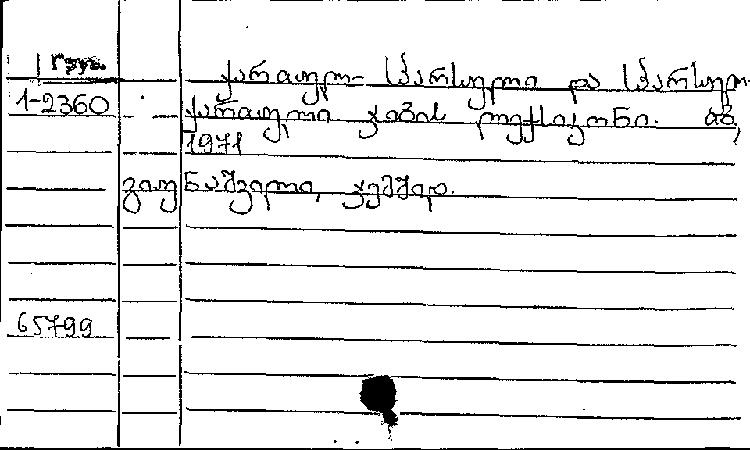 1 Груз.
ქართულ-სპარსული და სპარსულ-
1-2360
ქართული ჯიბის ლექსიკონი. თბ,
1971
გიუნაშვილი, ჯემშიდ.
65799